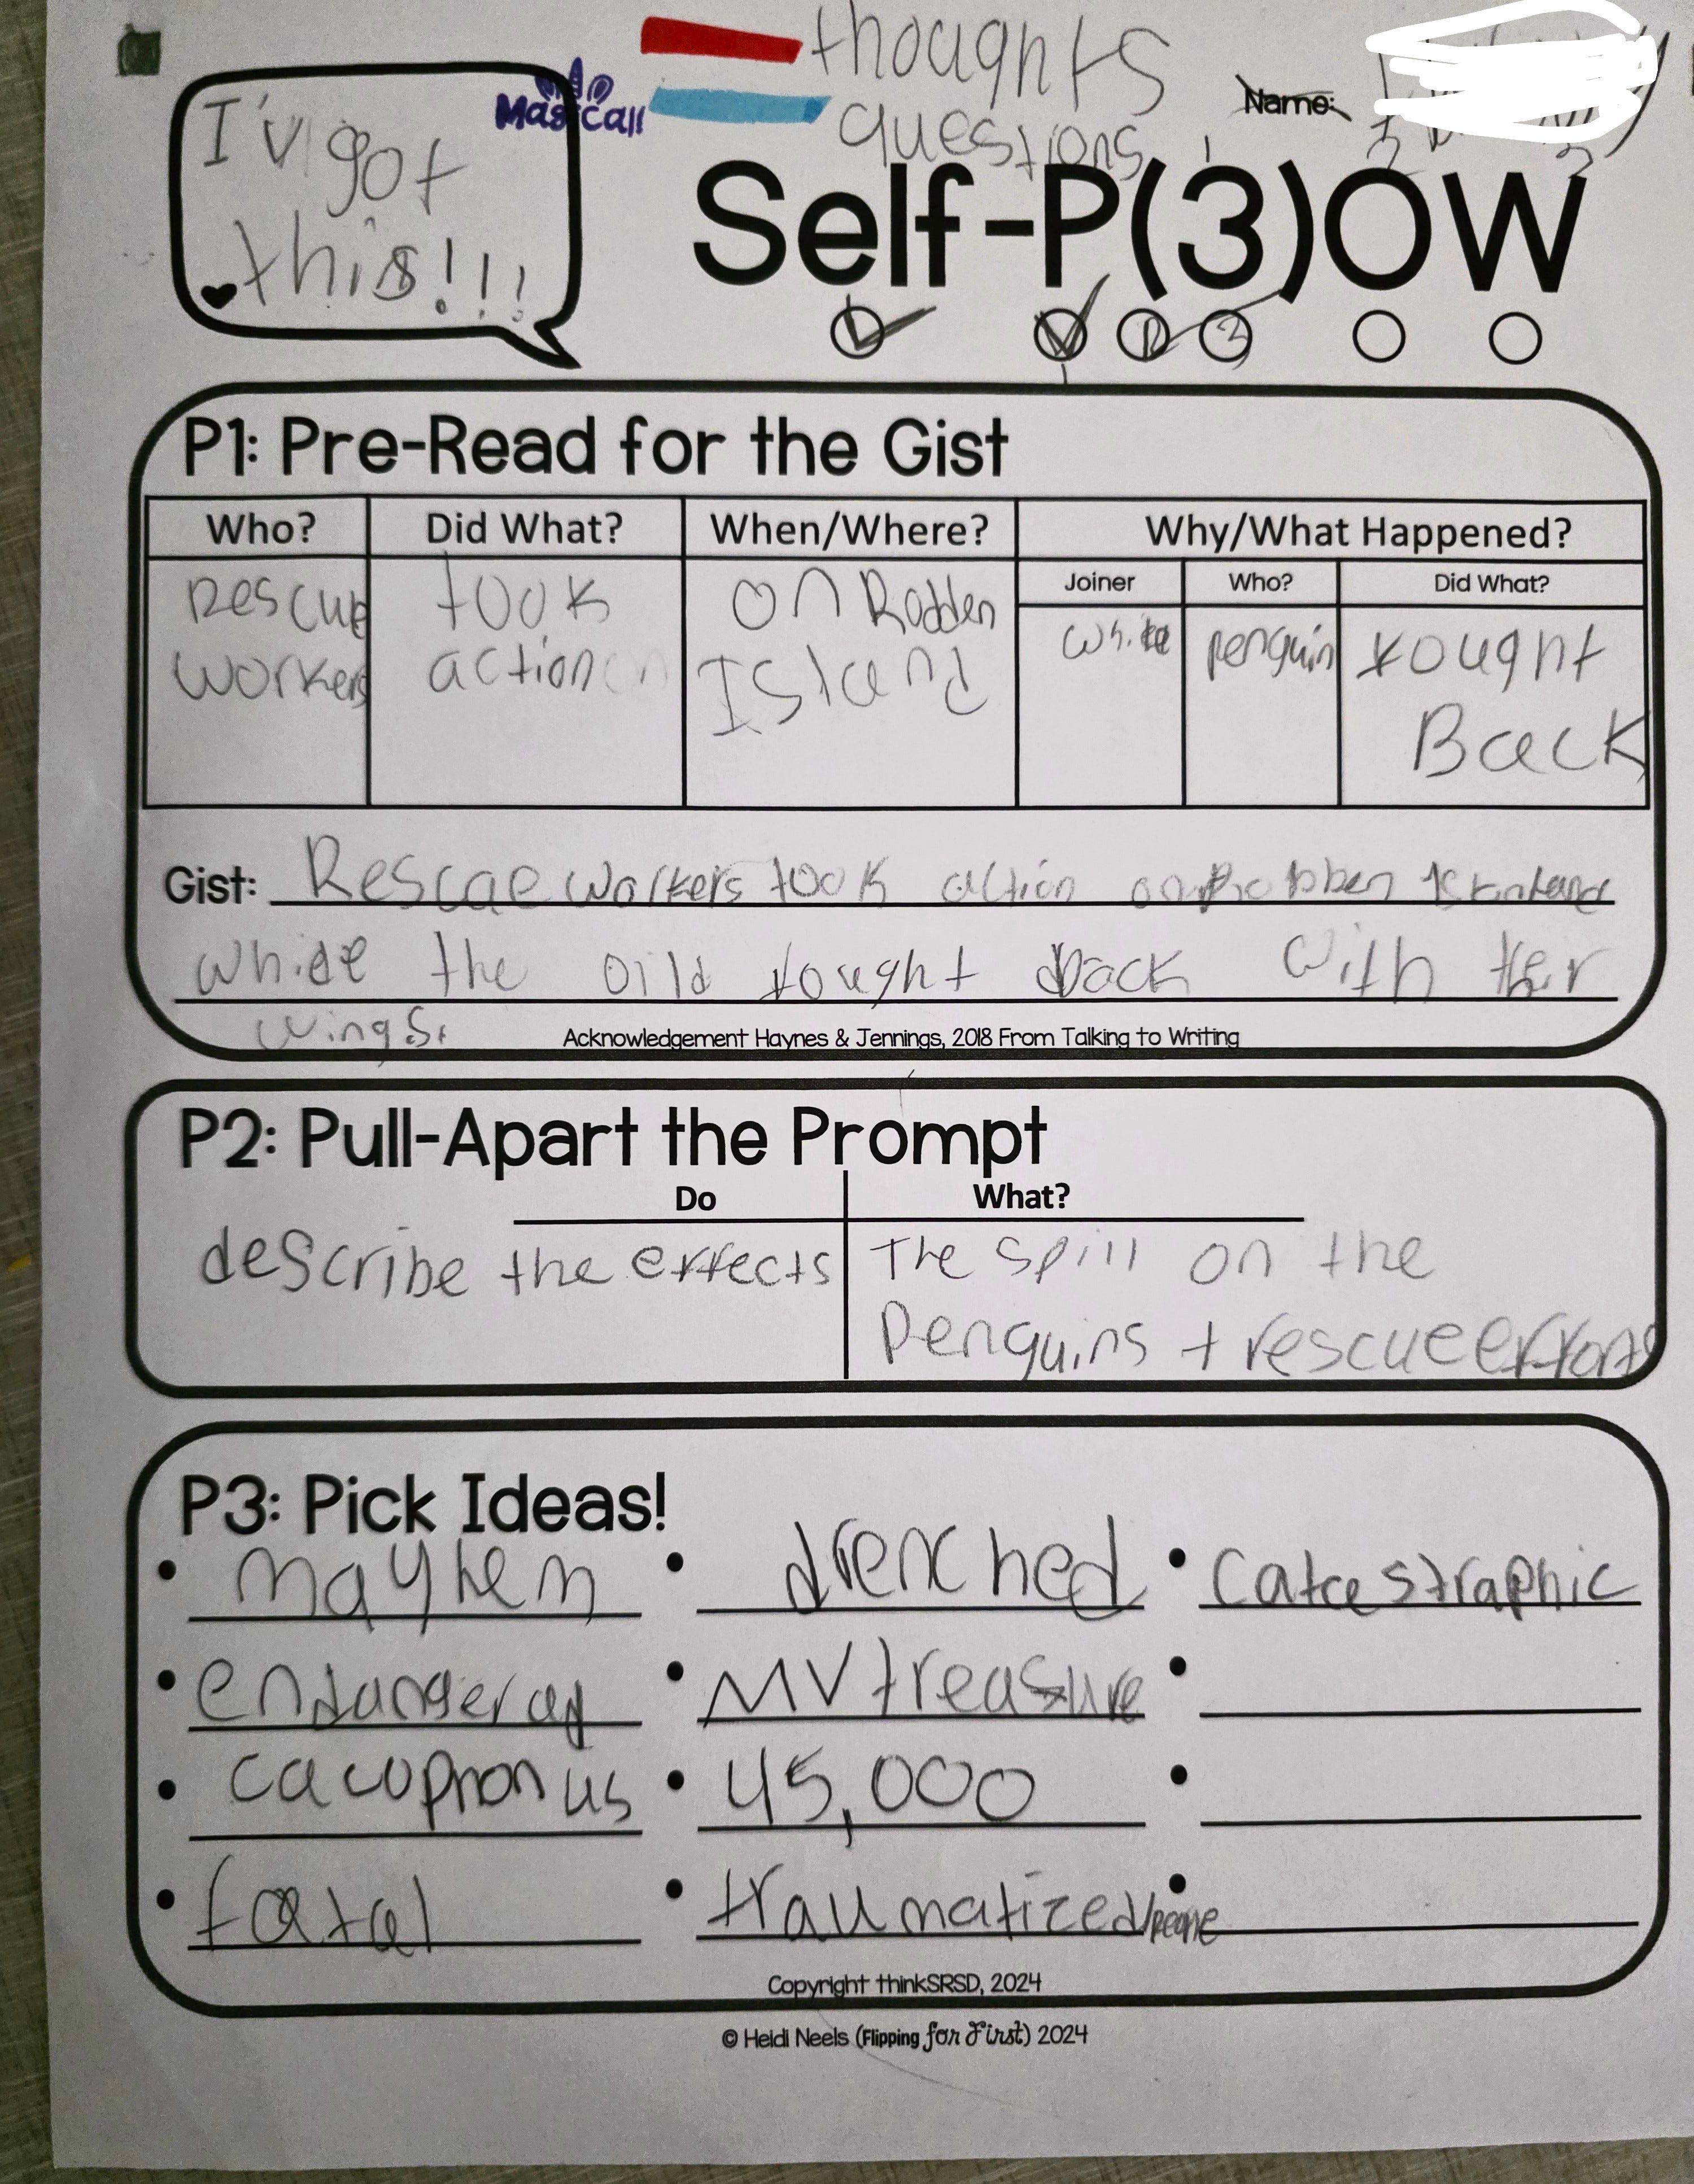 thoughts
Magicall
questions
Name:
I'v got
this!!!
Self-P(3)OW
P1: Pre-Read for the Gist
Who? Did What? When/Where? Why/What Happened?
Joiner Who? Did What?
Rescue took on Robben while penguin fought
workers action Island Back
Gist: Rescue workers took action on Robben
while the fought back with their
wings.
Acknowledgement Haynes & Jennings, 2018 From Talking to Writing
P2: Pull-Apart the Prompt
Do What?
describe the effects The spill on the
Penguins + rescue efforts
P3: Pick Ideas!
• mayhem • drenched • Catastraphic
• endangered • MV treasure •
• cacophonus • 45,000 •
• fatal • traumatized/people •
Copyright thinkSRSD, 2024
© Heidi Neels (Flipping for First) 2024